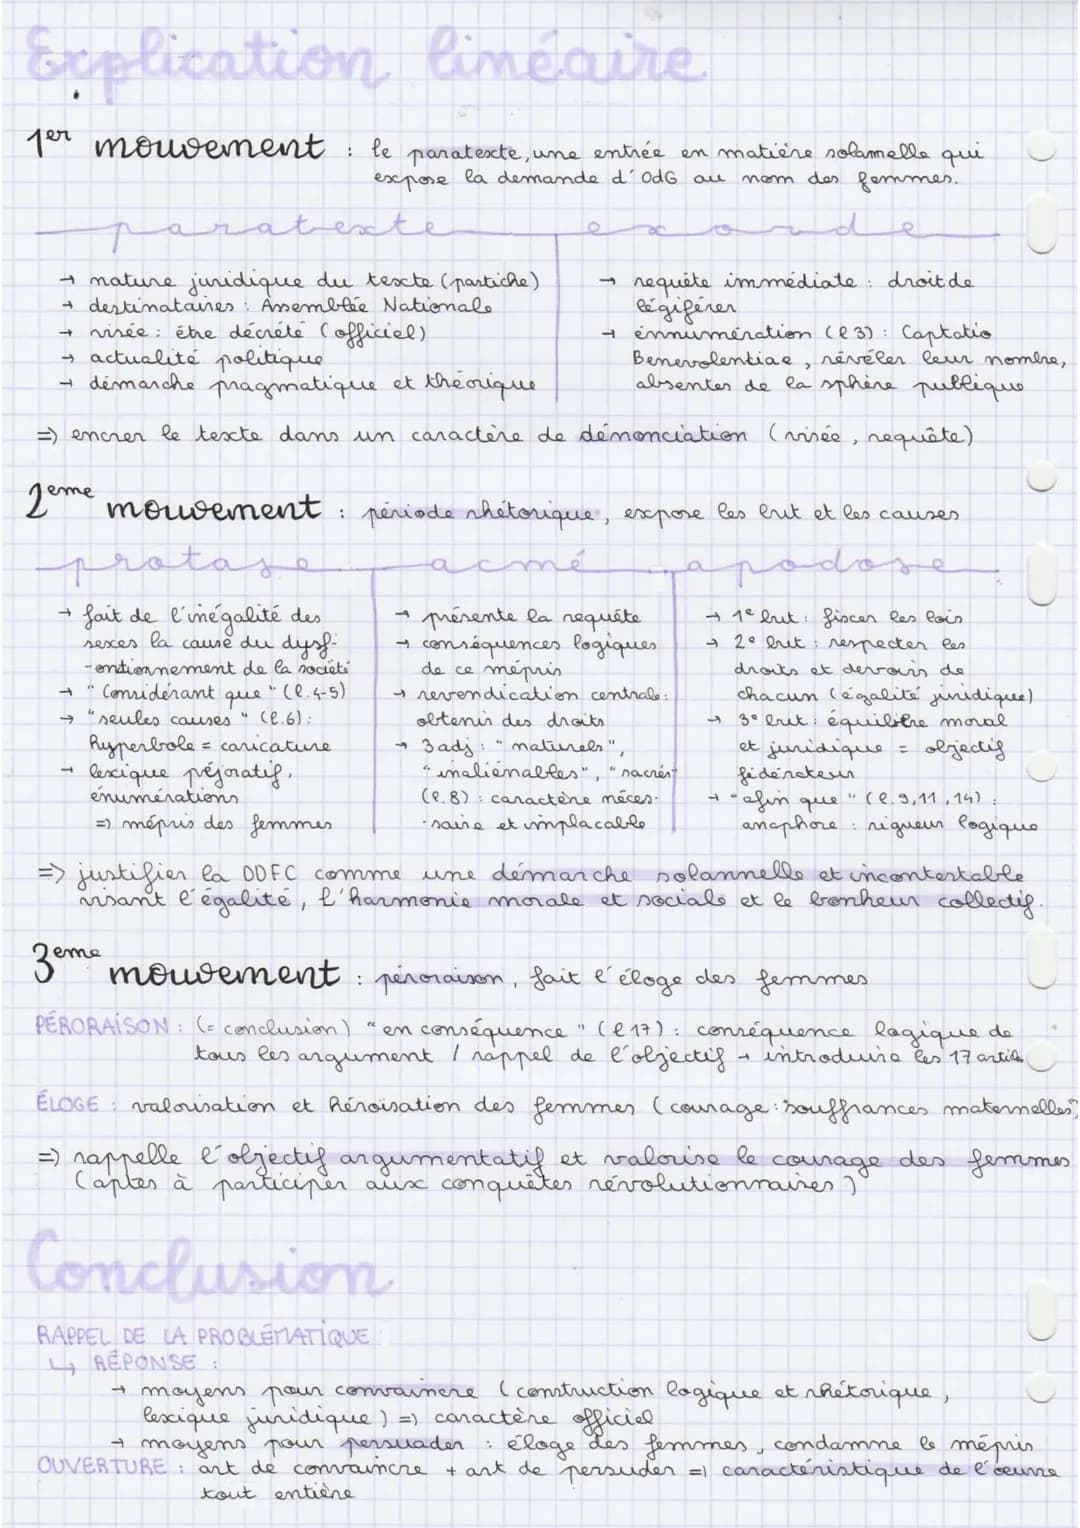 Explication linéaire
1er mouvement : le paratexte, une entrée en matière solamelle qui
expose la demande d'OdG au nom des femmes.
paratexte
→ nature juridique du texte (partiche)
→ destinataires : Assemblée Nationale
→ visée : être décrété (officiel)
→ actualité politique
→ démarche pragmatique et théorique
exorde
→ requête immédiate : droit de
légiférer
→ énnumération (l3) : Captatio
Benevolentiae, révéler leur nombre,
absentes de la sphère publique
=> encrer le texte dans un caractère de dénonciation (visée, requête)
2eme mouvement : période rhétorique, expose les but et les causes
protase
→ fait de l'inégalité des
sexes la cause du dysf-
-onctionnement de la société
→ "Considérant que" (l.4-5)
→ "seules causes" (l.6) :
hyperbole = caricature
→ lexique péjoratif,
énumérations
=> mépris des femmes
acmé
→ présente la requête
→ conséquences logiques
de ce mépris
→ revendication centrale :
obtenir des droits
→ 3 adj : "naturels",
"inaliénables", "sacrés"
(l.8) : caractère néces-
-saire et implacable
apodose
→ 1e but : fiscer les lois
→ 2e but : respecter les
droits et devoirs de
chacun (égalité juridique)
→ 3e but : équilibre moral
et juridique = objectif
fédérateur
→ "afin que" (l.9,11,14) :
anaphore : rigueur logique
=> justifier la DDFC comme une démarche solannelle et incontestable
visant l'égalité, l'harmonie morale et sociale et le bonheur collectif.
3eme mouvement : péroraison, fait l'éloge des femmes
PÉRORAISON : (= conclusion) "en conséquence" (l17) : conséquence logique de
tous les argument / rappel de l'objectif → introduire les 17 articles
ÉLOGE : valorisation et héroïsation des femmes (courage : souffrances maternelles")
=> rappelle l'objectif argumentatif et valorise le courage des femmes
(aptes à participer aux conquêtes révolutionnaires)
Conclusion
RAPPEL DE LA PROBLÉMATIQUE :
↳ RÉPONSE :
→ moyens pour convaincre (construction logique et rhétorique,
lexique juridique) => caractère officiel
→ moyens pour persuader : éloge des femmes, condamne le mépris
OUVERTURE : art de convaincre + art de persuder => caractéristique de l'oeuvre
tout entière